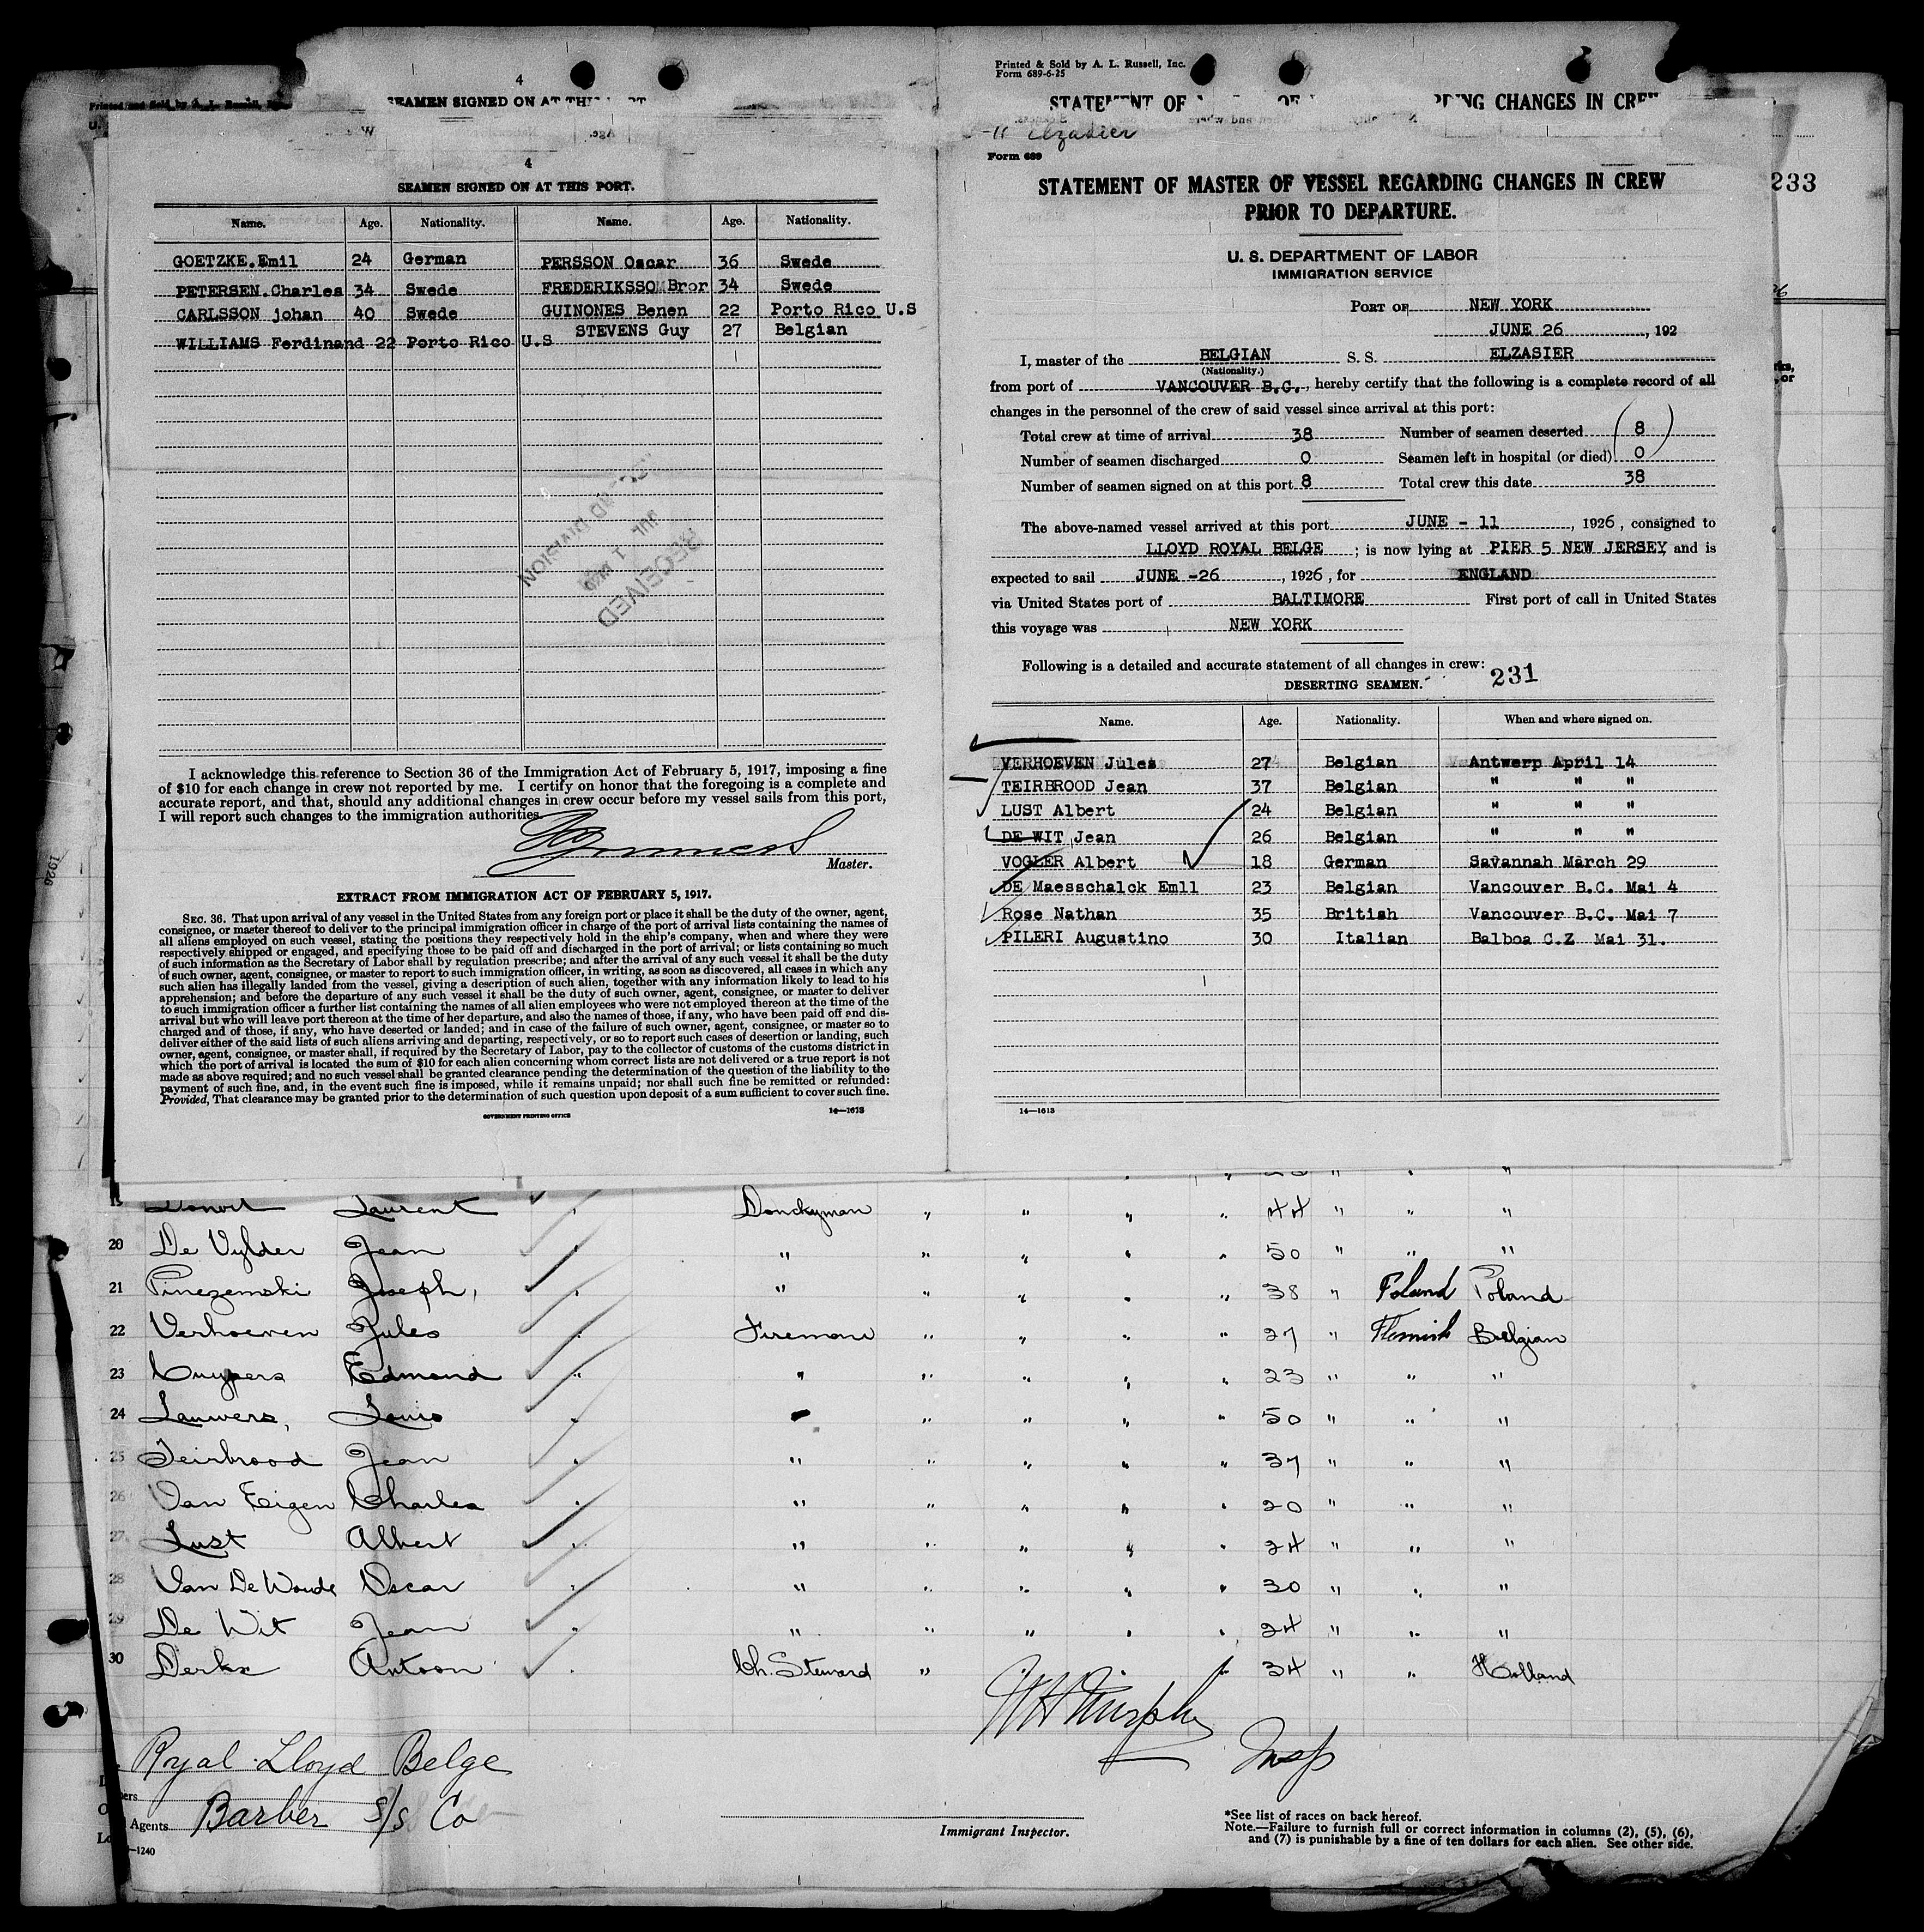 4
SEAMEN SIGNED ON AT THIS PORT
4
SEAMEN SIGNED ON AT THIS PORT.
Name. Age. Nationality. Name. Age. Nationality.
GOETZKE.Emil 24 German PERSSON Oscar 36 Swede
PETERSEN.Charles 34 Swede FREDERIKSSO Bror 34 Swede
CARLSSON johan 40 Swede GUINONES Benen 22 Porto Rico U.S
STEVENS Guy 27 Belgian
WILLIAMS Ferdinand 22 Porto Rico U.S
RECEIVED
JUL 1
DIVISION
I acknowledge this reference to Section 36 of the Immigration Act of February 5, 1917, imposing a fine
of $10 for each change in crew not reported by me. I certify on honor that the foregoing is a complete and
accurate report, and that, should any additional changes in crew occur before my vessel sails from this port,
I will report such changes to the immigration authorities.
Master.
EXTRACT FROM IMMIGRATION ACT OF FEBRUARY 5, 1917.
SEC. 36. That upon arrival of any vessel in the United States from any foreign port or place it shall be the duty of the owner, agent,
consignee, or master thereof to deliver to the principal immigration officer in charge of the port of arrival lists containing the names of
all aliens employed on such vessel, stating the positions they respectively hold in the ship's company, when and where they were
respectively shipped or engaged, and specifying those to be paid off and discharged in the port of arrival; or lists containing so much
of such information as the Secretary of Labor shall by regulation prescribe; and after the arrival of any such vessel it shall be the duty
of such owner, agent, consignee, or master to report to such immigration officer, in writing, as soon as discovered, all cases in which any
such alien has illegally landed from the vessel, giving a description of such alien, together with any information likely to lead to his
apprehension; and before the departure of any such vessel it shall be the duty of such owner, agent, consignee, or master to deliver
to such immigration officer a further list containing the names of all alien employees who were not employed thereon at the time of the
arrival but who will leave port thereon at the time of her departure, and also the names of those, if any, who have been paid off and dis-
charged and of those, if any, who have deserted or landed; and in case of the failure of such owner, agent, consignee, or master so to
deliver either of the said lists of such aliens arriving and departing, respectively, or so to report such cases of desertion or landing, such
owner, agent, consignee, or master shall, if required by the Secretary of Labor, pay to the collector of customs of the customs district in
which the port of arrival is located the sum of $10 for each alien concerning whom correct lists are not delivered or a true report is not
made as above required; and no such vessel shall be granted clearance pending the determination of the question of the liability to the
payment of such fine, and, in the event such fine is imposed, while it remains unpaid; nor shall such fine be remitted or refunded:
Provided, That clearance may be granted prior to the determination of such question upon deposit of a sum sufficient to cover such fine.
GOVERNMENT PRINTING OFFICE 14—1613
Printed & Sold by A. L. Russell, Inc.
Form 689-6-25
STATEMENT OF REGARDING CHANGES IN CREW
Elzasier
Form 689
STATEMENT OF MASTER OF VESSEL REGARDING CHANGES IN CREW
PRIOR TO DEPARTURE.
233
U. S. DEPARTMENT OF LABOR
IMMIGRATION SERVICE
PORT OF NEW YORK
JUNE 26, 192
I, master of the BELGIAN S. S. ELZASIER
(Nationality.)
from port of VANCOUVER B.C., hereby certify that the following is a complete record of all
changes in the personnel of the crew of said vessel since arrival at this port:
Total crew at time of arrival 38 Number of seamen deserted (8)
Number of seamen discharged 0 Seamen left in hospital (or died) 0
Number of seamen signed on at this port 8 Total crew this date 38
The above-named vessel arrived at this port JUNE - 11, 1926, consigned to
LLOYD ROYAL BELGE; is now lying at PIER 5 NEW JERSEY and is
expected to sail JUNE -26, 1926, for ENGLAND
via United States port of BALTIMORE First port of call in United States
this voyage was NEW YORK
Following is a detailed and accurate statement of all changes in crew:
231
DESERTING SEAMEN.
Name. Age. Nationality. When and where signed on.
VERHOEVEN Jules 27 Belgian Antwerp April 14
TEIRBROOD Jean 37 Belgian " " "
LUST Albert 24 Belgian " " "
DE WIT Jean 26 Belgian " " "
VOGLER Albert 18 German Savannah March 29
DE Maesschalck Emil 23 Belgian Vancouver B.C. Mai 4
Rose Nathan 35 British Vancouver B.C. Mai 7
PILERI Augustino 30 Italian Balboa C.Z Mai 31.
14—1613
19 Laurent Donckyman " " " " 44 " " "
20 De Vylder Jean " " " " " 50 " " "
21 Pinezemski Joseph, " " " " " 38 " Poland Poland
22 Verhoeven Jules Fireman " " " " 27 " Flemish Belgian
23 Cuypers Edmond " " " " " 23 " " "
24 Lauwers, Louis " " " " " 50 " " "
25 Teirbrood Jean " " " " " 37 " " "
26 Van Eigen Charles " " " " " 20 " " "
27 Lust Albert " " " " " 24 " " "
28 Van De Woude Oscar " " " " " 30 " " "
29 De Wit Jean " " " " " 24 " " "
30 Derkx Antoon Ch. Steward " " 34 " " Holland
W H Murphy
Insp
Royal Lloyd Belge
Agents Barber S/S Co
Immigrant Inspector.
*See list of races on back hereof.
Note.—Failure to furnish full or correct information in columns (2), (5), (6),
and (7) is punishable by a fine of ten dollars for each alien. See other side.
—1240